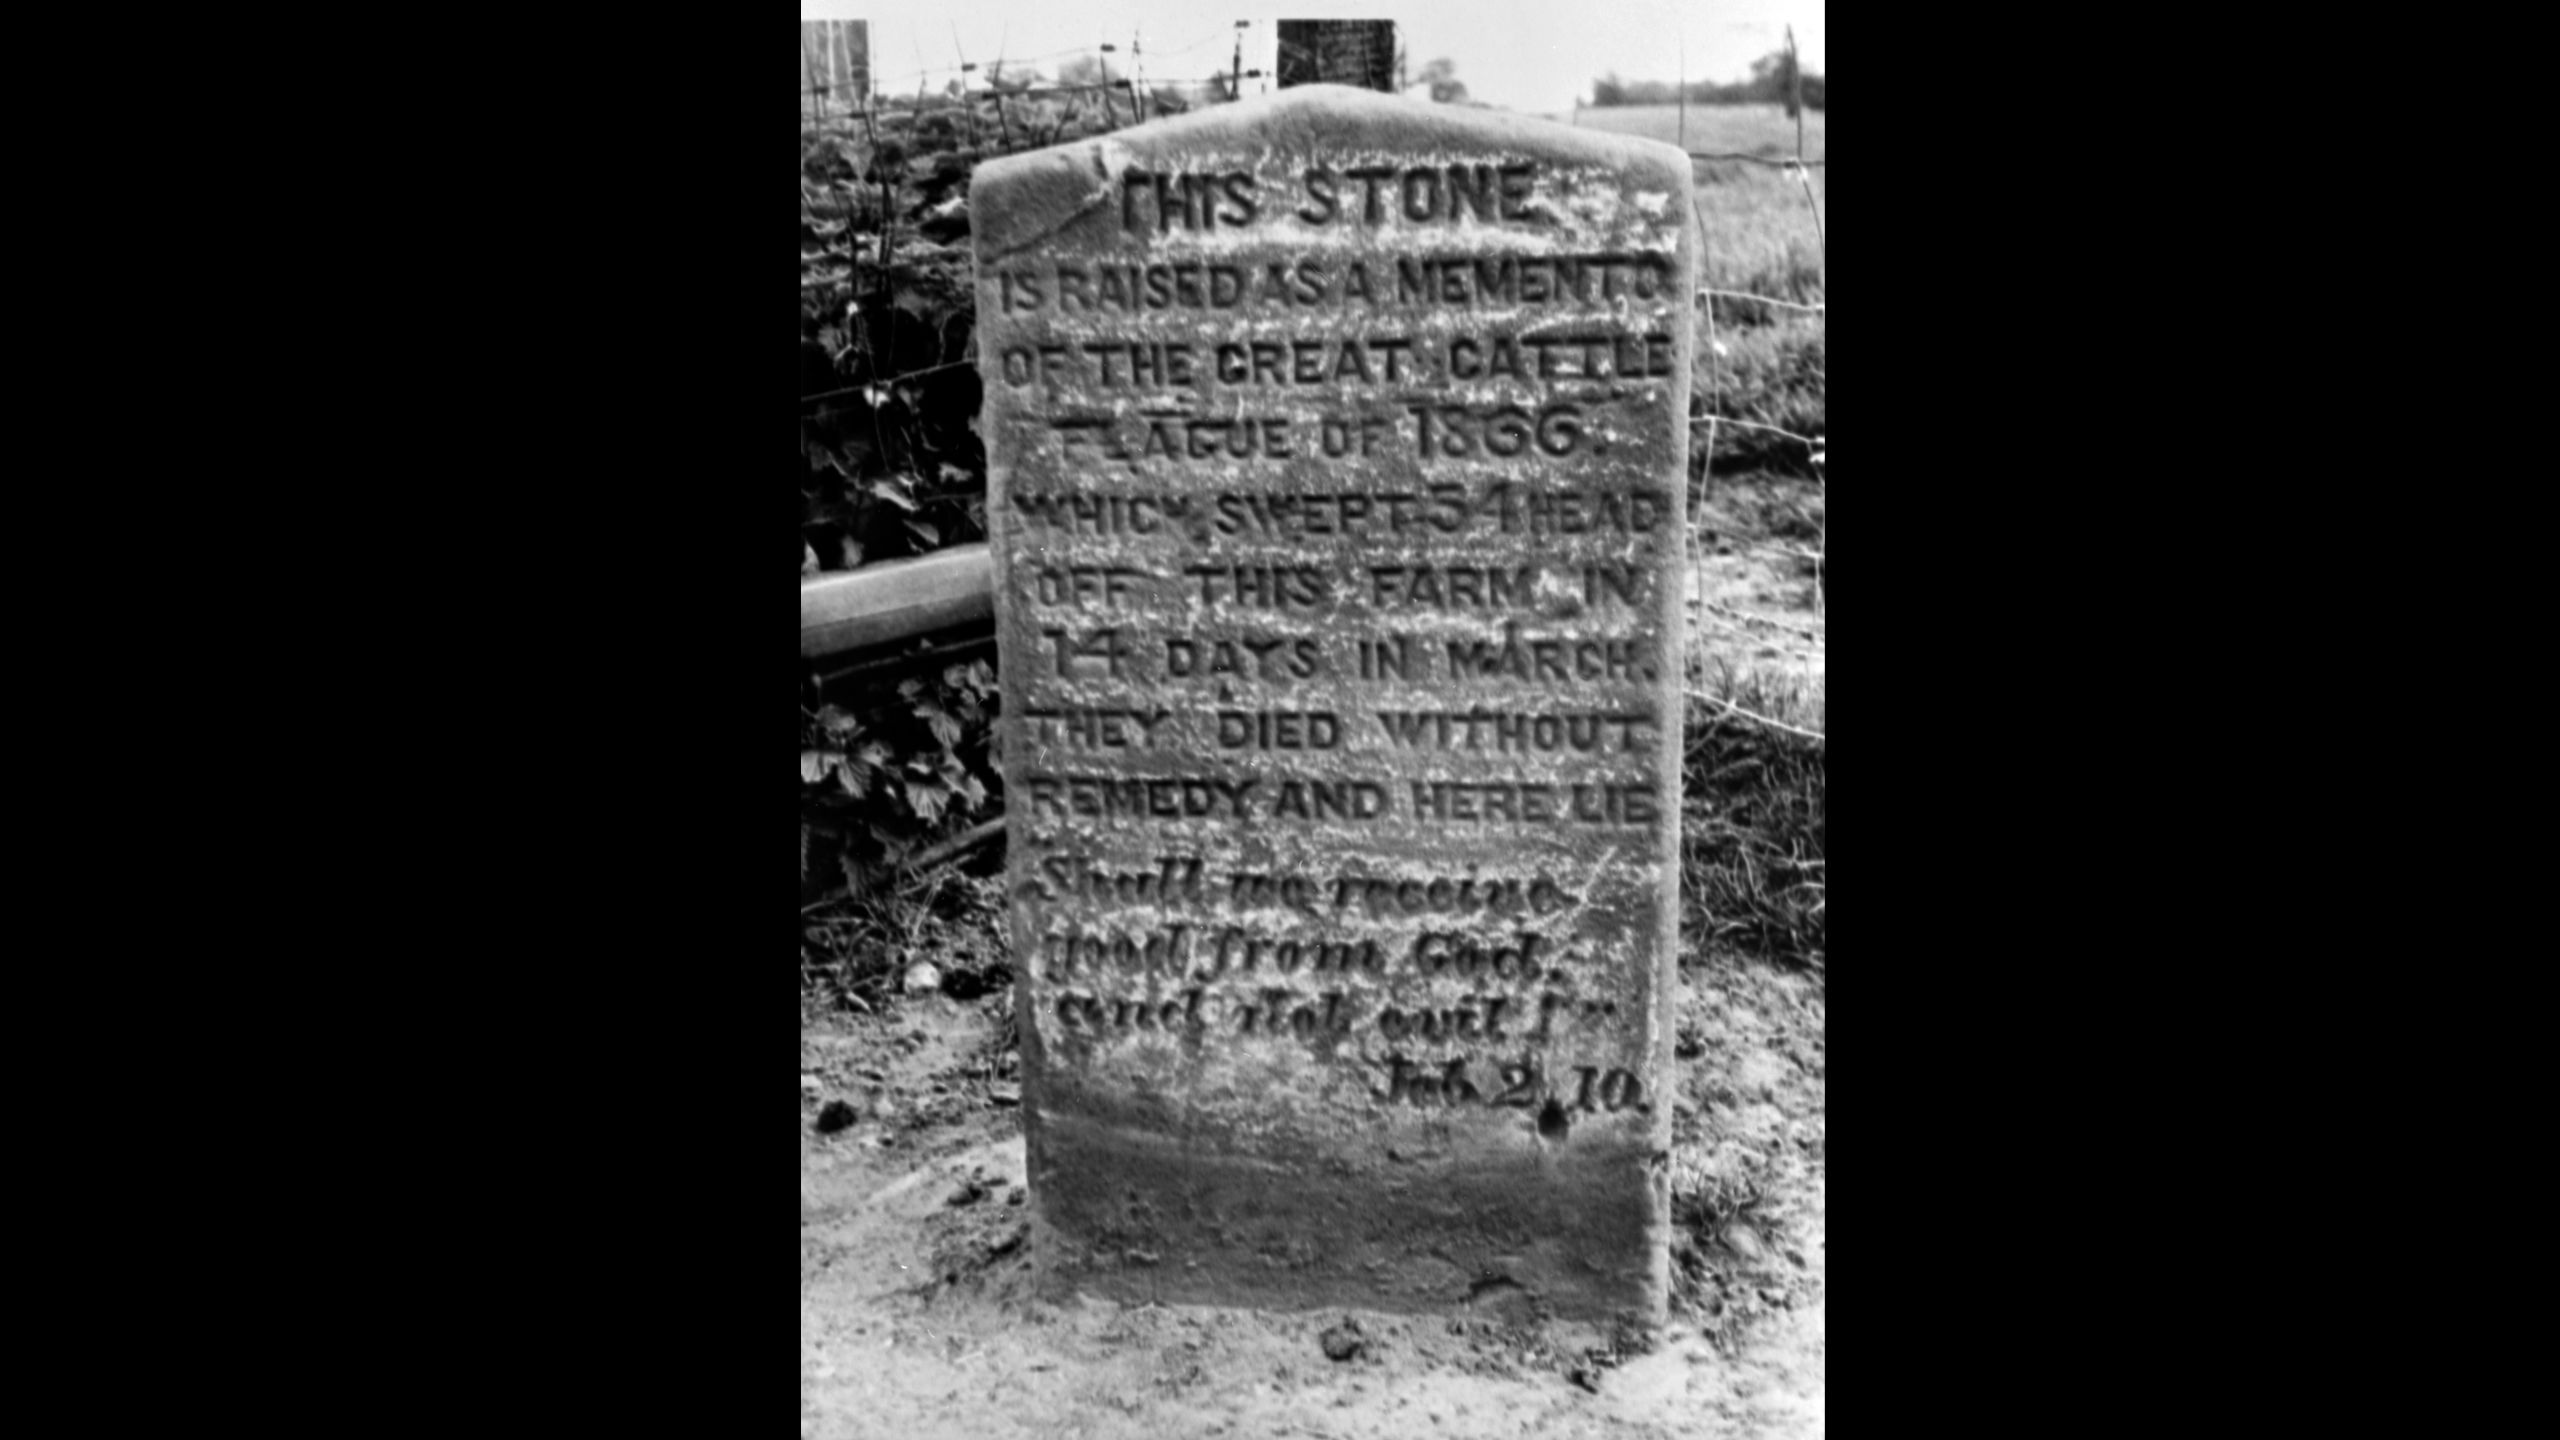 THIS STONE
IS RAISED AS A MEMENTO
OF THE GREAT CATTLE
PLAGUE OF 1866.
WHICH SWEPT 54 HEAD
OFF THIS FARM IN
14 DAYS IN MARCH.
THEY DIED WITHOUT
REMEDY AND HERE LIE
Shall we receive
good from God,
and not evil?"
Job 2, 10.